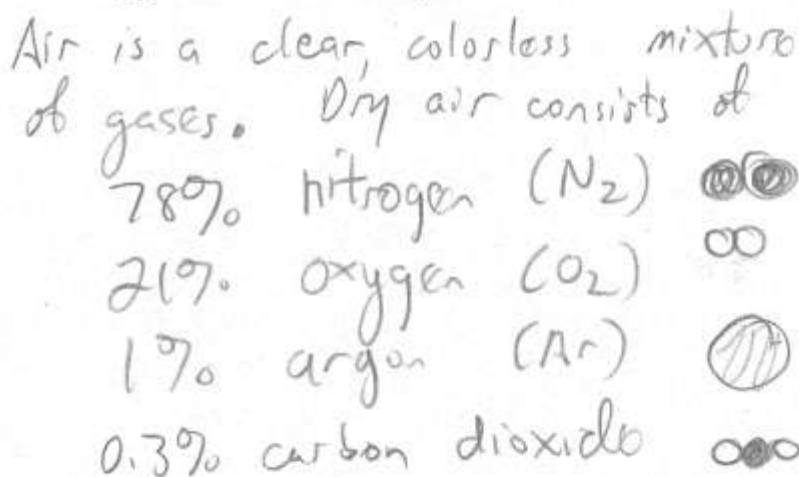 Air is a clear, colorless mixture
of gases. Dry air consists of
78% nitrogen (N₂)
21% oxygen (O₂)
1% argon (Ar)
0.3% carbon dioxide